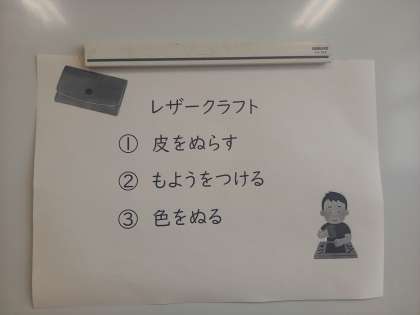 レザークラフト
① 皮をぬらす
② もようをつける
③ 色をぬる